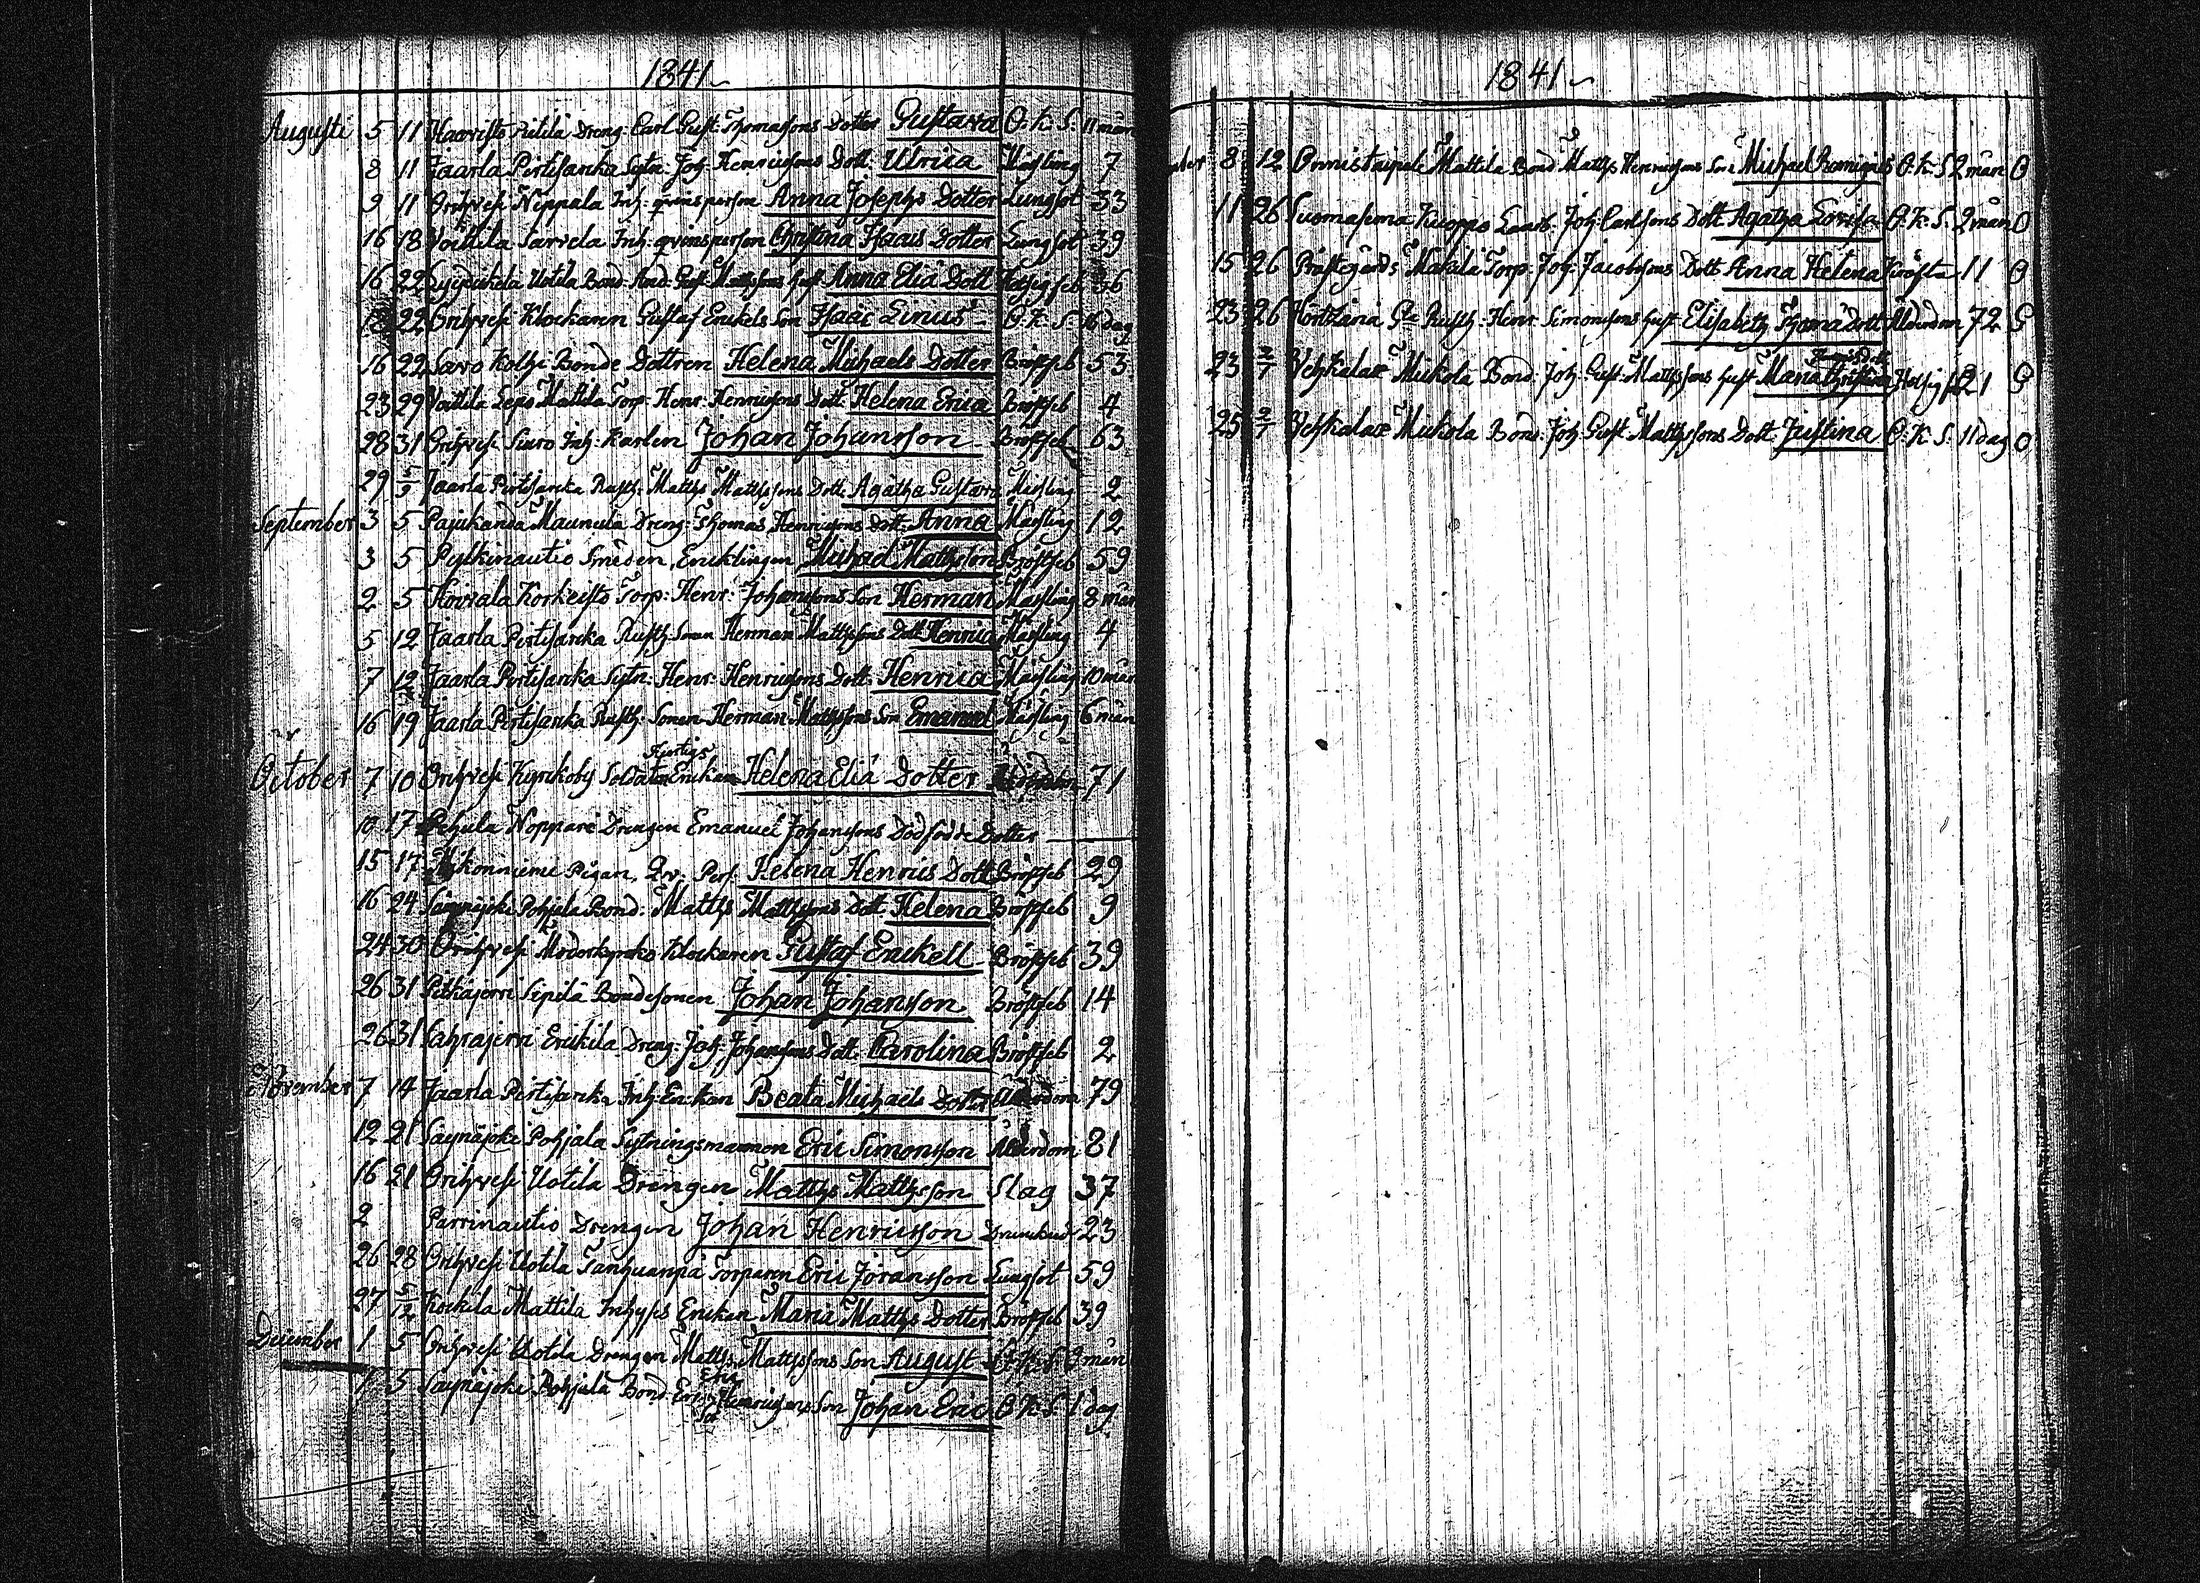 1841
Augusti 5 11 Haavisto Dreng. Carl Gust. Thomassons Dotter Gustava O.K.S. 11 mån
8 11 Jaarla Pertisarka Sytn. Joh. Henricssons Dott. Ulrica Mässling 7
9 11 Orihvesi Neppala Inh. qvinsperson Anna Josephs Dotter Lungsot 33
16 18 Voitila Sarvela Inh. qvinsperson Christina Isaacs Dotter Lungsot 39
16 22 Uotila Bond. And. Gust. Mattssons hust. Anna Eliæ Dott. Hetsig feb. 36
18 22 Orihvesi Klockaren Gustaf Enckels Son Isaac Linus O.K.S. 16 dag
16 22 Savo Bonde Dottren Helena Michaels Dotter Bröstfeb 53
23 29 Voitila Seppä Mattila Torp. Henr. Henricssons Dott. Helena Erica Bröstfeb 4
28 31 Orihvesi Siuro Inh. Karlen Johan Johansson Bröstfeb 63
29 5/9 Jaarla Pertisarka Rusth. Matths Matthssons Dott. Agatha Gustava Mässling 2
September 3 5 Pajukanda Maunula Dreng. Thomas Henricssons Dott. Anna Mässling 12
3 5 Pylkinautio Smeden, Encklingen Michael Matthsson Bröstfeb 59
2 5 Koivala Korkeisto Torp. Henr. Johanssons Son Herman Mässling 8 mån
5 12 Jaarla Pertisarka Rusth. Sonen Herman Matthssons Dott. Henrica Mässling 4
7 12 Jaarla Pertisarka Sytn. Henr. Henricssons Dott. Henrica Mässling 10 mån
16 19 Jaarla Pertisarka Rusth. Sonen Herman Matthssons Son Emanuel Mässling 6 mån
October 7 10 Orihvesi Kyrckoby Soldats Enckan Helena Eliæ Dotter Ålderdom 71
10 17 Pehula Noppari Drengen Emanuel Johanssons Dödfödde Dotter
15 17 Pigan, Qv. Pers. Helena Henrics Dott. Bröstfeb 29
16 24 Säynäjoki Pohjala Bond. Matths Matthssons Dott. Helena Bröstfeb 9
24 30 Orihvesi Moderkyrko Klockaren Gustaf Enckell Bröstfeb 39
26 31 Pitkäjervi Sipilä Bondesonen Johan Johansson Bröstfeb 14
26 31 Sahrajervi Erickila Dreng. Joh. Johanssons Dott. Carolina Bröstfeb 2
November 7 14 Jaarla Pertisarka Inh. Enckan Beata Michaels Dotter Ålderdom 79
12 21 Säynäjoki Pohjala Sytningsmannen Eric Simonsson Ålderdom 81
16 21 Orihvesi Uotila Drengen Matths Matthsson Slag 37
2 Parrinautio Drengen Johan Henricsson Drunknad 23
26 28 Orihvesi Uotila Tanhuanpä Torparen Eric Jöransson Lungsot 59
27 5/12 Kockila Mattila Inhyses Enckan Maria Matths Dotter Bröstfeb 39
December 1 5 Orihvesi Uotila Drengen Matths Matthssons Son August 3 mån
1 5 Säynäjoki Pohjala Bond. Eric Henricssons Son Johan Eric O.K.S. 1 dag
1841
8 12 Onnistaipale Mattila Bond. Matths Henricssons Son Michael Remigius O.K.S. 2 mån O
11 26 Suomasema Kuoppo Joh. Carlssons Dott. Agatha Lovisa O.K.S. 2 mån O
15 26 Prästegårds Makila Torp. Joh. Jacobssons Dott. Anna Helena Kräfta 11 O
23 26 Rusth. Henr. Simonssons hust. Elisabeth Thomæ Dott. Ålderdom 72 G
23 2/7 Vehkalax Mickola Bond. Joh. Gust. Matthssons hust. Maria Christina Hetsig feb 21 G
25 2/7 Vehkalax Mickola Bond. Joh. Gust. Matthssons Dott. Justina O.K.S. 11 dag O